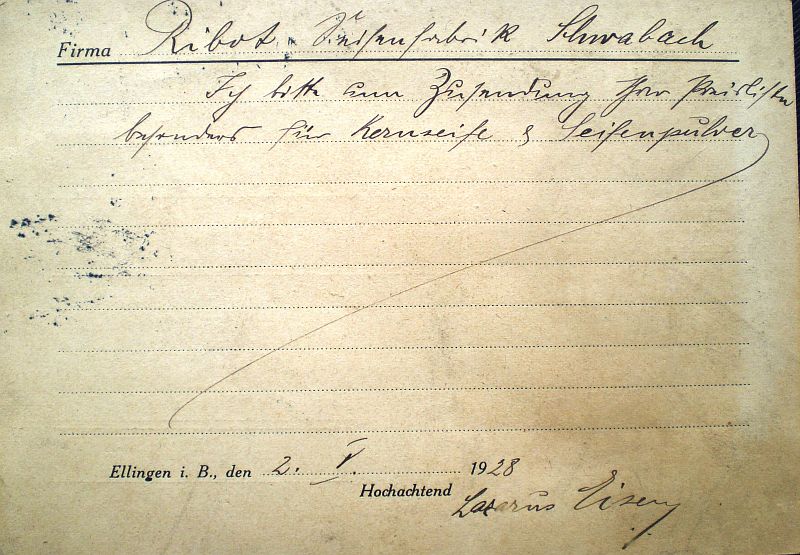 Firma Ribot Seifenfabrik Schwabach
Ich bitte um Zusendung Ihrer Preisliste
besonders für Kernseife & Seifenpulver
Ellingen i. B., den 2. V. 1928
Hochachtend Lazarus